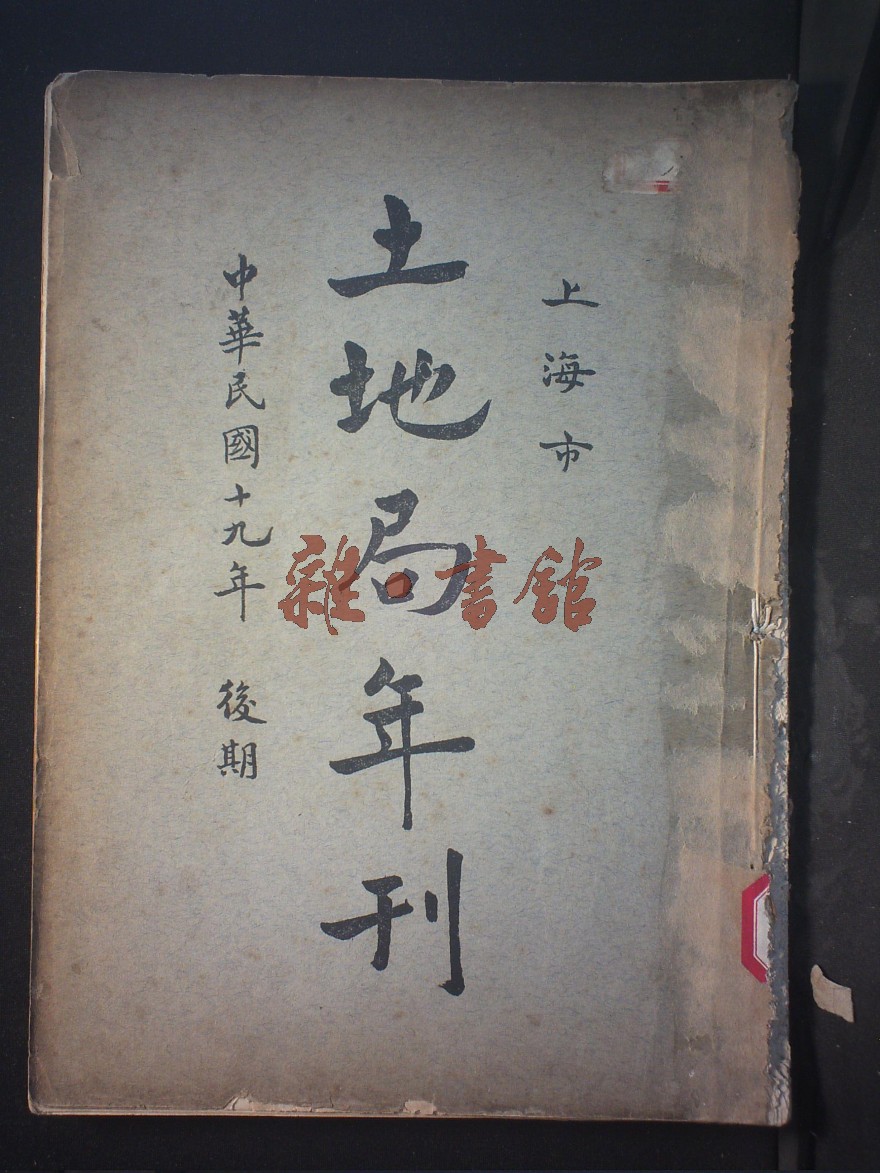 上海市
土地局年刊
中華民國十九年 後期
雜·書館